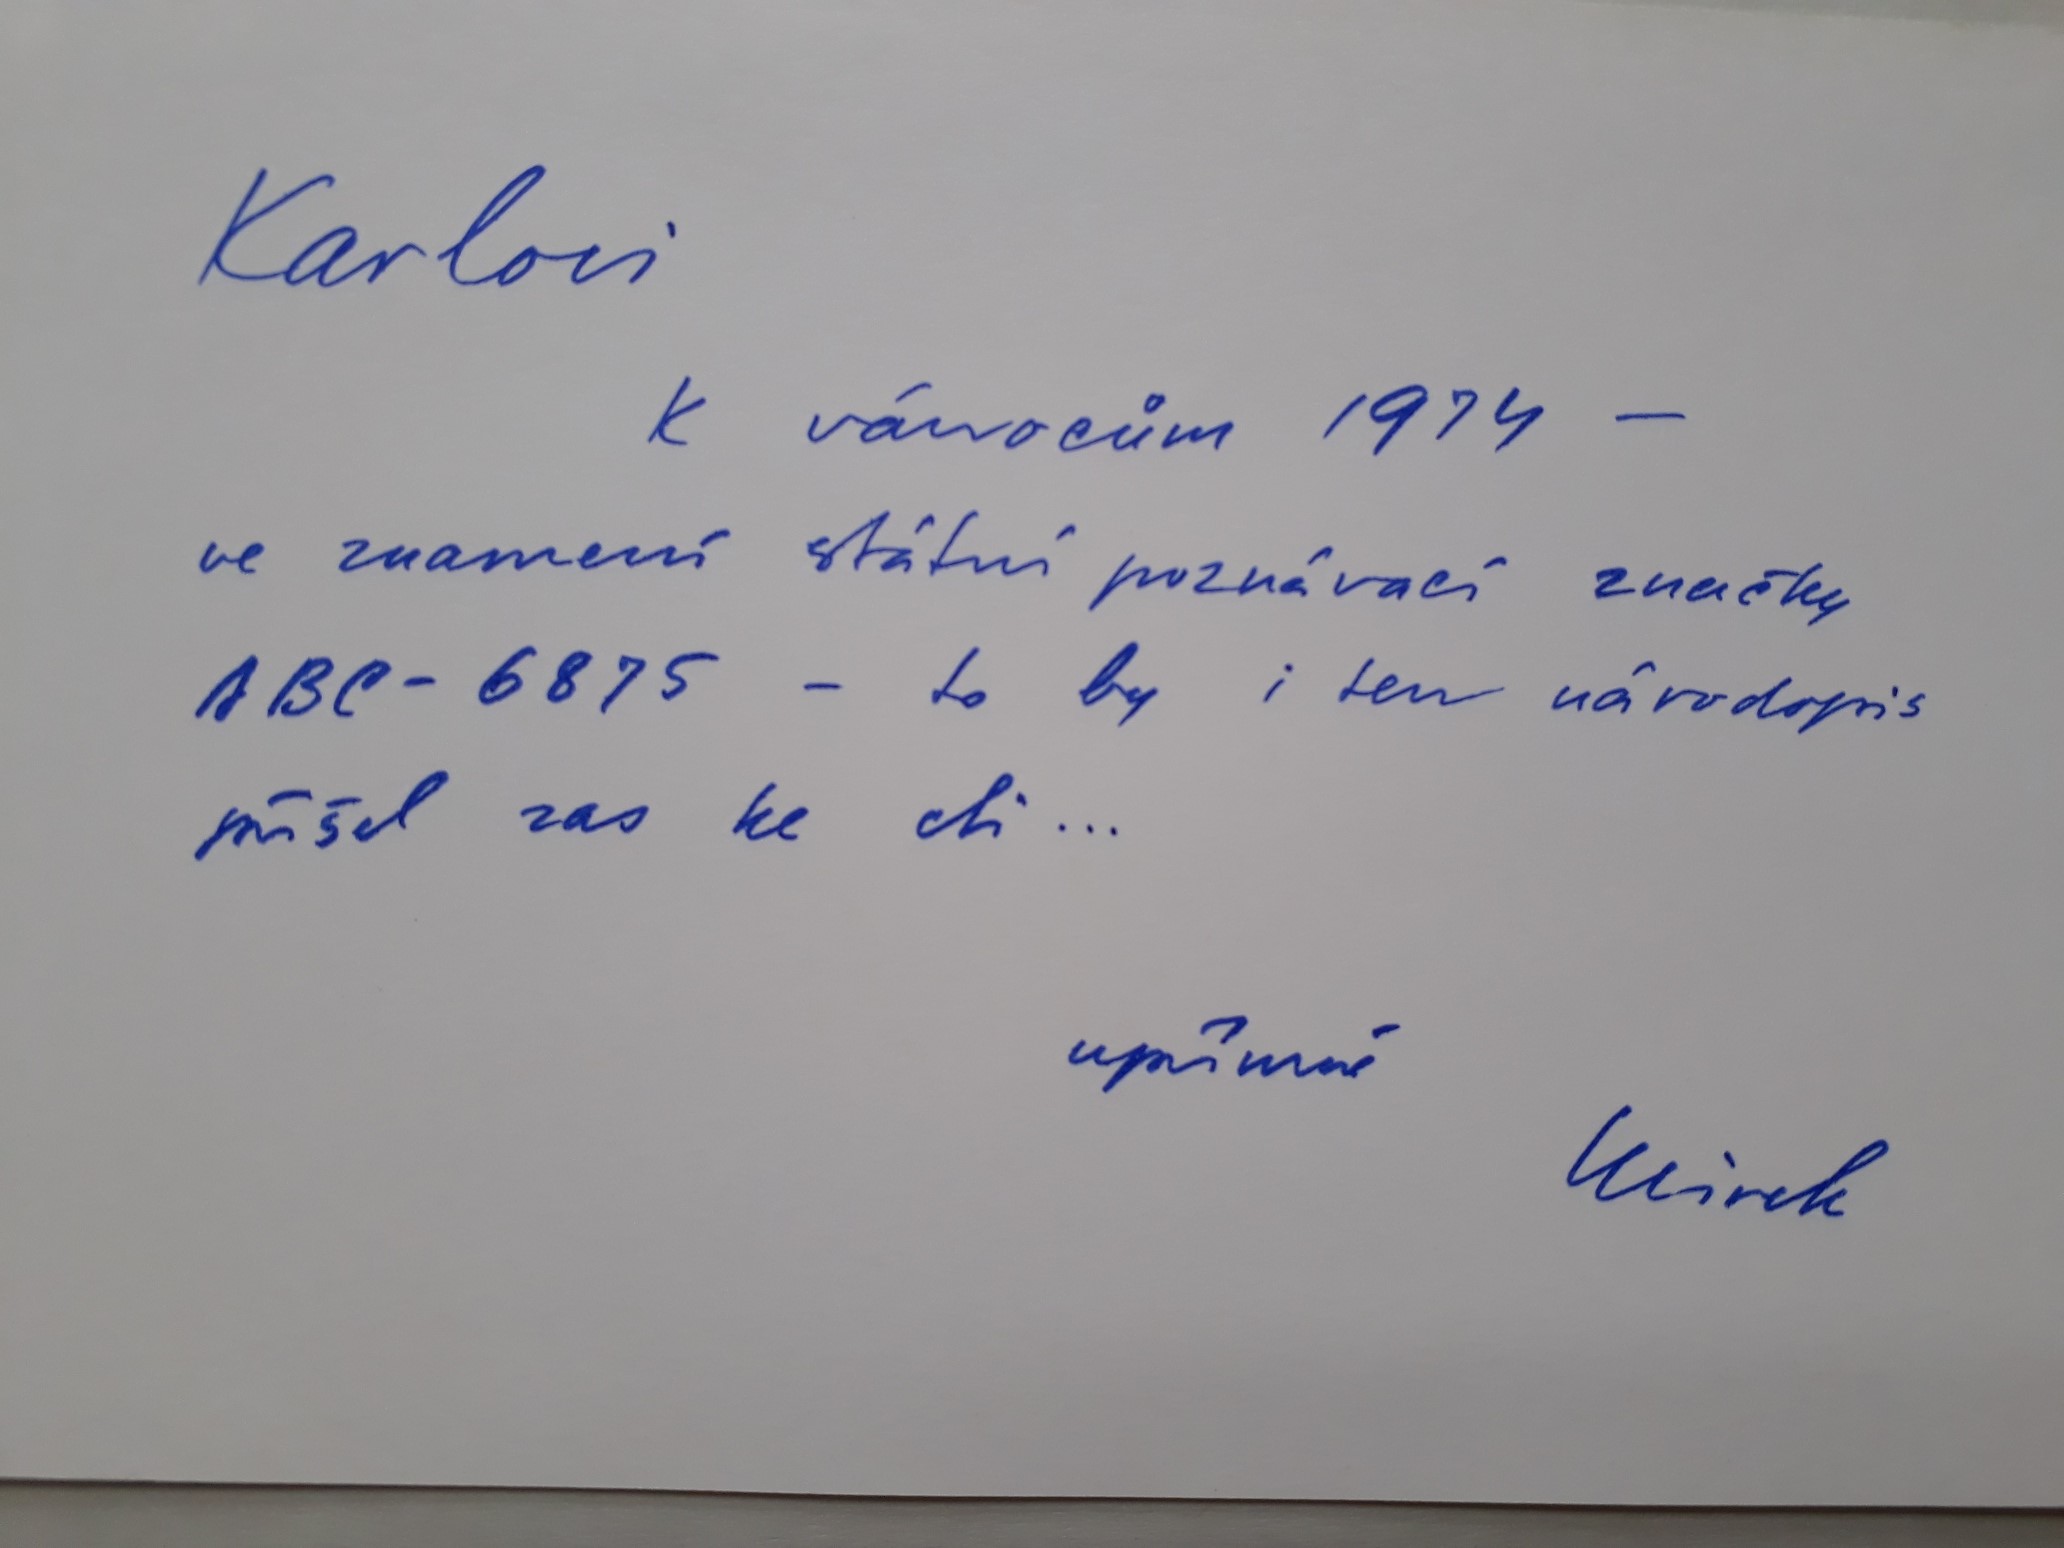 Karlovi
K vánocům 1974 —
ve znamení státní poznávací značky
ABC - 6875 - to by i ten národopis
přišel zas ke cti ...
upřímně
Mirek